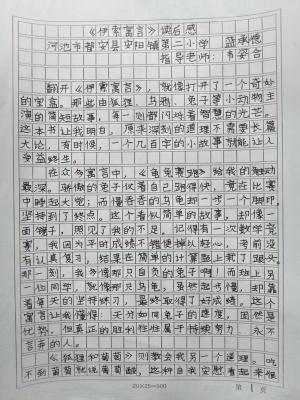 《伊索寓言》读后感
河池市都安县安阳镇第二小学 蓝承德
指导老师：韦姿合
翻开《伊索寓言》，就像打开了一个奇妙
的宝盒。那些由狐狸、乌鸦、兔子等小动物主
演的简短故事，每一则都闪烁着智慧的光芒。
这本书让我明白，原来深刻的道理不需要长篇
大论，有时候，一个几百字的小故事就能让人
受益终生。
在众多寓言中，《龟兔赛跑》给我的触动
最深。骄傲的兔子仗着自己跑得快，竟在比赛
中睡起大觉；而慢吞吞的乌龟却一步一个脚印，
坚持到了终点。这个看似简单的故事，却像一
面镜子，照见了我的不足。记得有一次数学竞
赛，我因为平时成绩不错便掉以轻心，考前没
有认真复习，结果在简单的计算题上栽了跟头。
那一刻，我多像那只自负的兔子啊！而班上另
一位同学，就像那只乌龟，虽然起步慢，却靠
着每天的坚持练习，最终取得了好成绩。这个
寓言让我懂得：天分如同兔子的速度，固然是
优势，但真正的胜利往往属于持续努力、永不
言弃的人。
《狐狸和葡萄》则教会我另一个道理。吃
不到葡萄就说葡萄酸，这种自我安慰看起来很
20×25=500
第 1 页